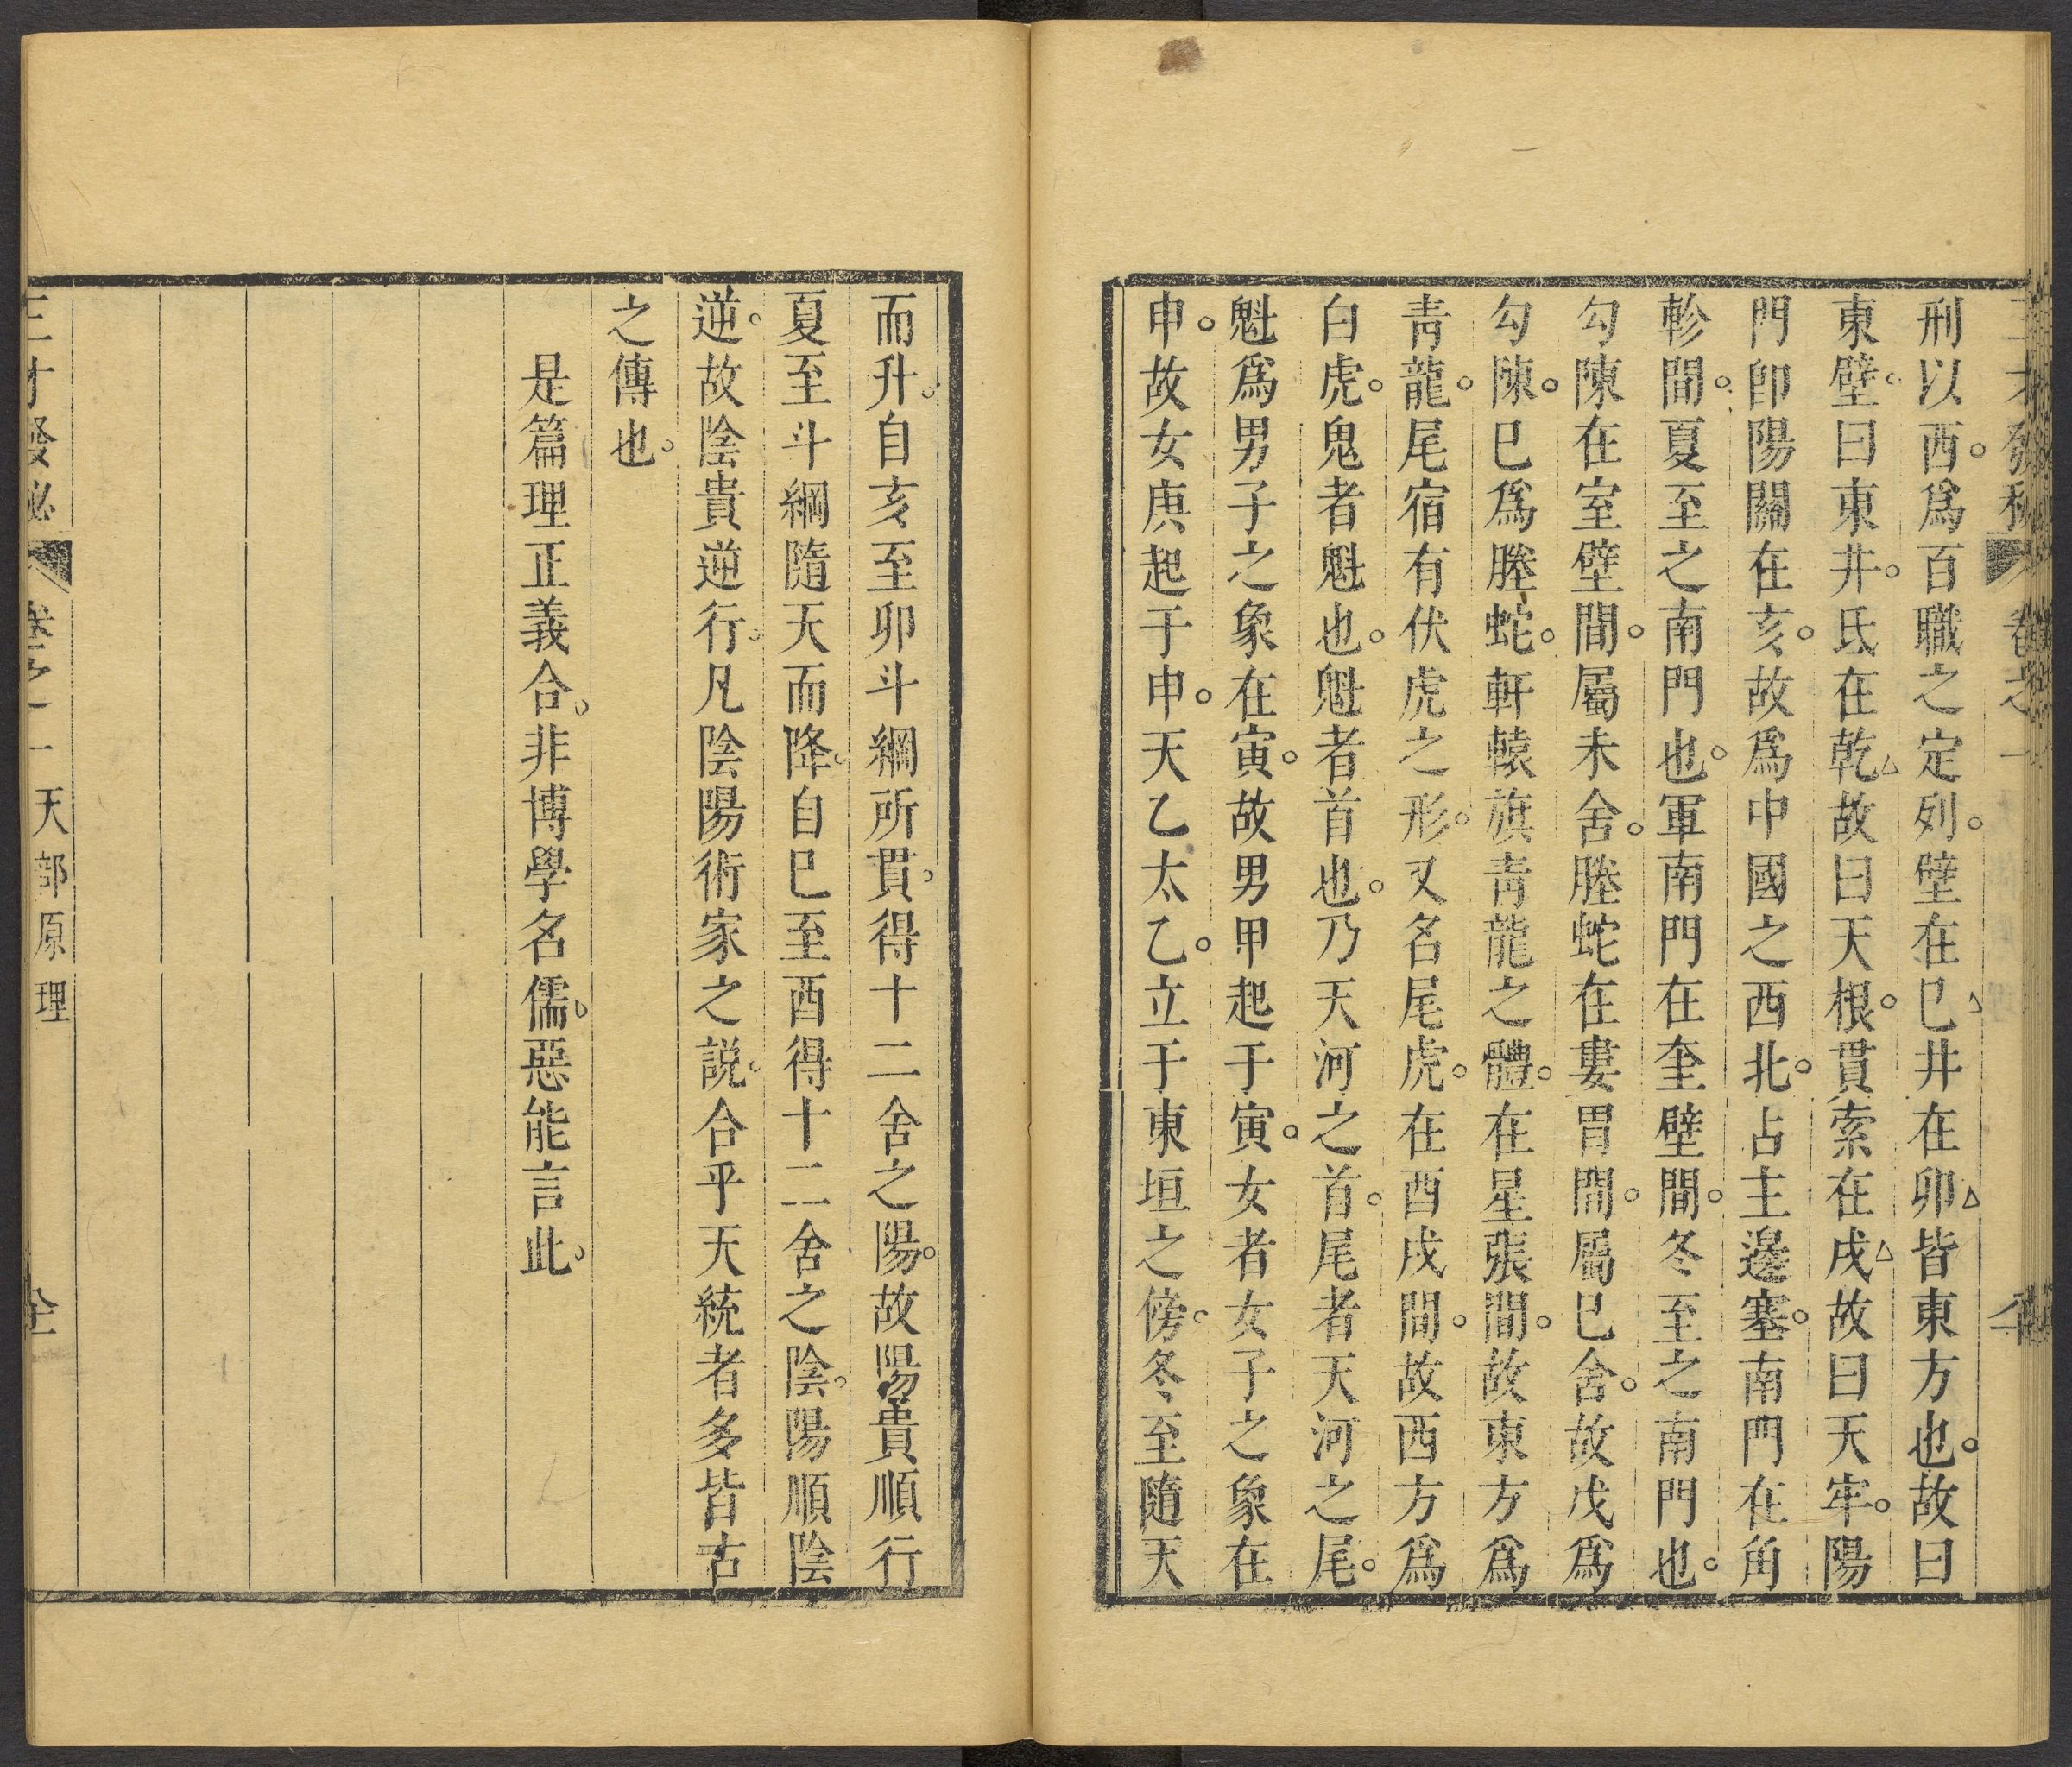 三才發秘 卷之一
刑以西。爲百職之定列。壁在巳井在卯皆東方也。故曰
東壁曰東井。氐在乾故曰天根。貫索在戌故曰天牢。陽
門卽陽關在亥。故爲中國之西北。占主邊塞。南門在角
軫間。夏至之南門也。軍南門在奎壁間。冬至之南門也。
勾陳在室壁間。屬未舍。螣蛇在婁胃間。屬巳舍。故戊爲
勾陳。巳爲螣蛇。軒轅旗青龍之體。在星張間。故東方爲
青龍。尾宿有伏虎之形。又名尾虎。在酉戌間。故西方爲
白虎。鬼者魁也。魁者首也。乃天河之首。尾者天河之尾。
魁爲男子之象在寅。故男甲起于寅。女者女子之象在
申。故女庚起于申。天乙太乙。立于東垣之傍。冬至隨天
而升。自亥至卯斗綱所貫。得十二舍之陽。故陽貴順行
夏至斗綱隨天而降。自巳至酉得十二舍之陰。陽順陰
逆。故陰貴逆行。凡陰陽術家之説。合乎天統者多皆古
之傳也。
是篇理正義合。非博學名儒。惡能言此。
三才發秘 卷之一 天部原理